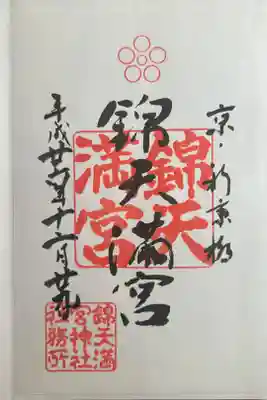 京・新京極
錦天満宮
錦天
満宮
平成廿年十二月廿
錦天満
宮神社
社務所